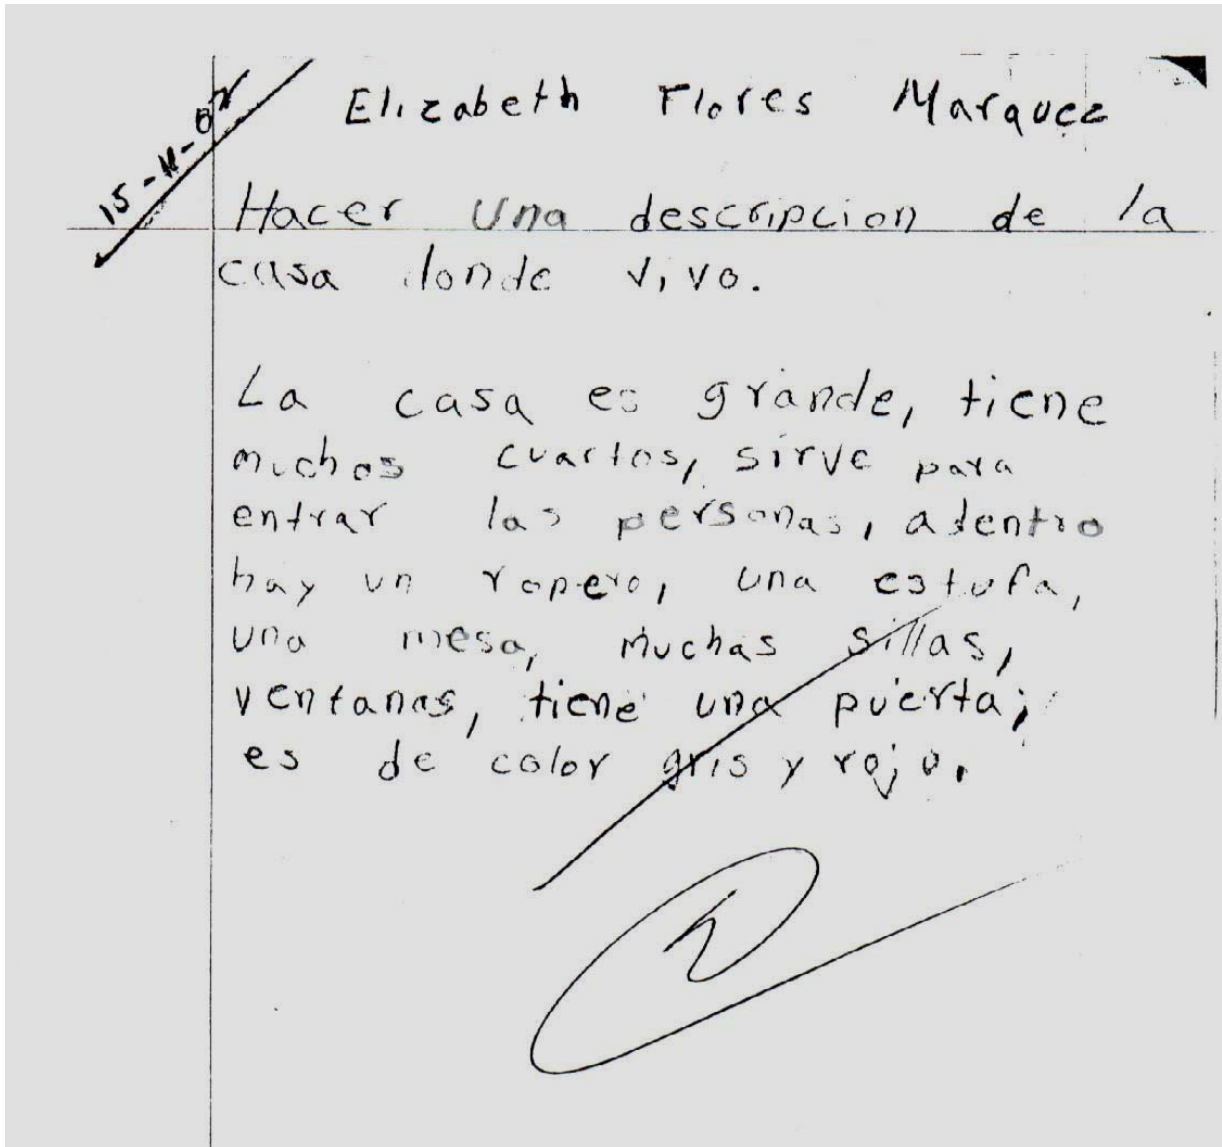 Elizabeth Flores Marquez
Hacer una descripcion de la
casa donde vivo.
La casa es grande, tiene
muchos cuartos, sirve para
entrar las personas, adentro
hay un ropero, una estufa,
una mesa, muchas sillas,
ventanas, tiene una puerta;
es de color gris y rojo.